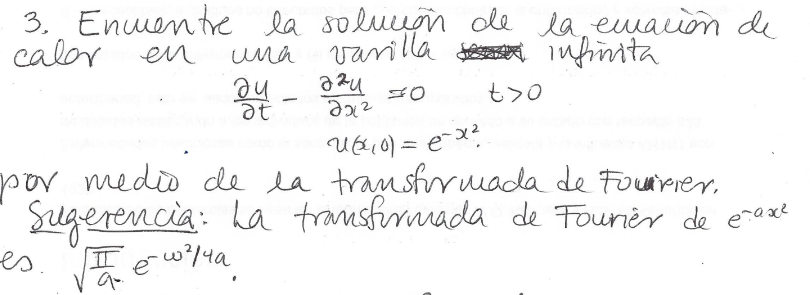 3. Encuentre la solución de la ecuación de
calor en una varilla infinita
∂u/∂t - ∂²u/∂x² = 0 t>0
u(x,0) = e^{-x²}.
por medio de la transformada de Fourier.
Sugerencia: La transformada de Fourier de e^{-ax²}
es √(π/a) e^{-ω²/4a}.